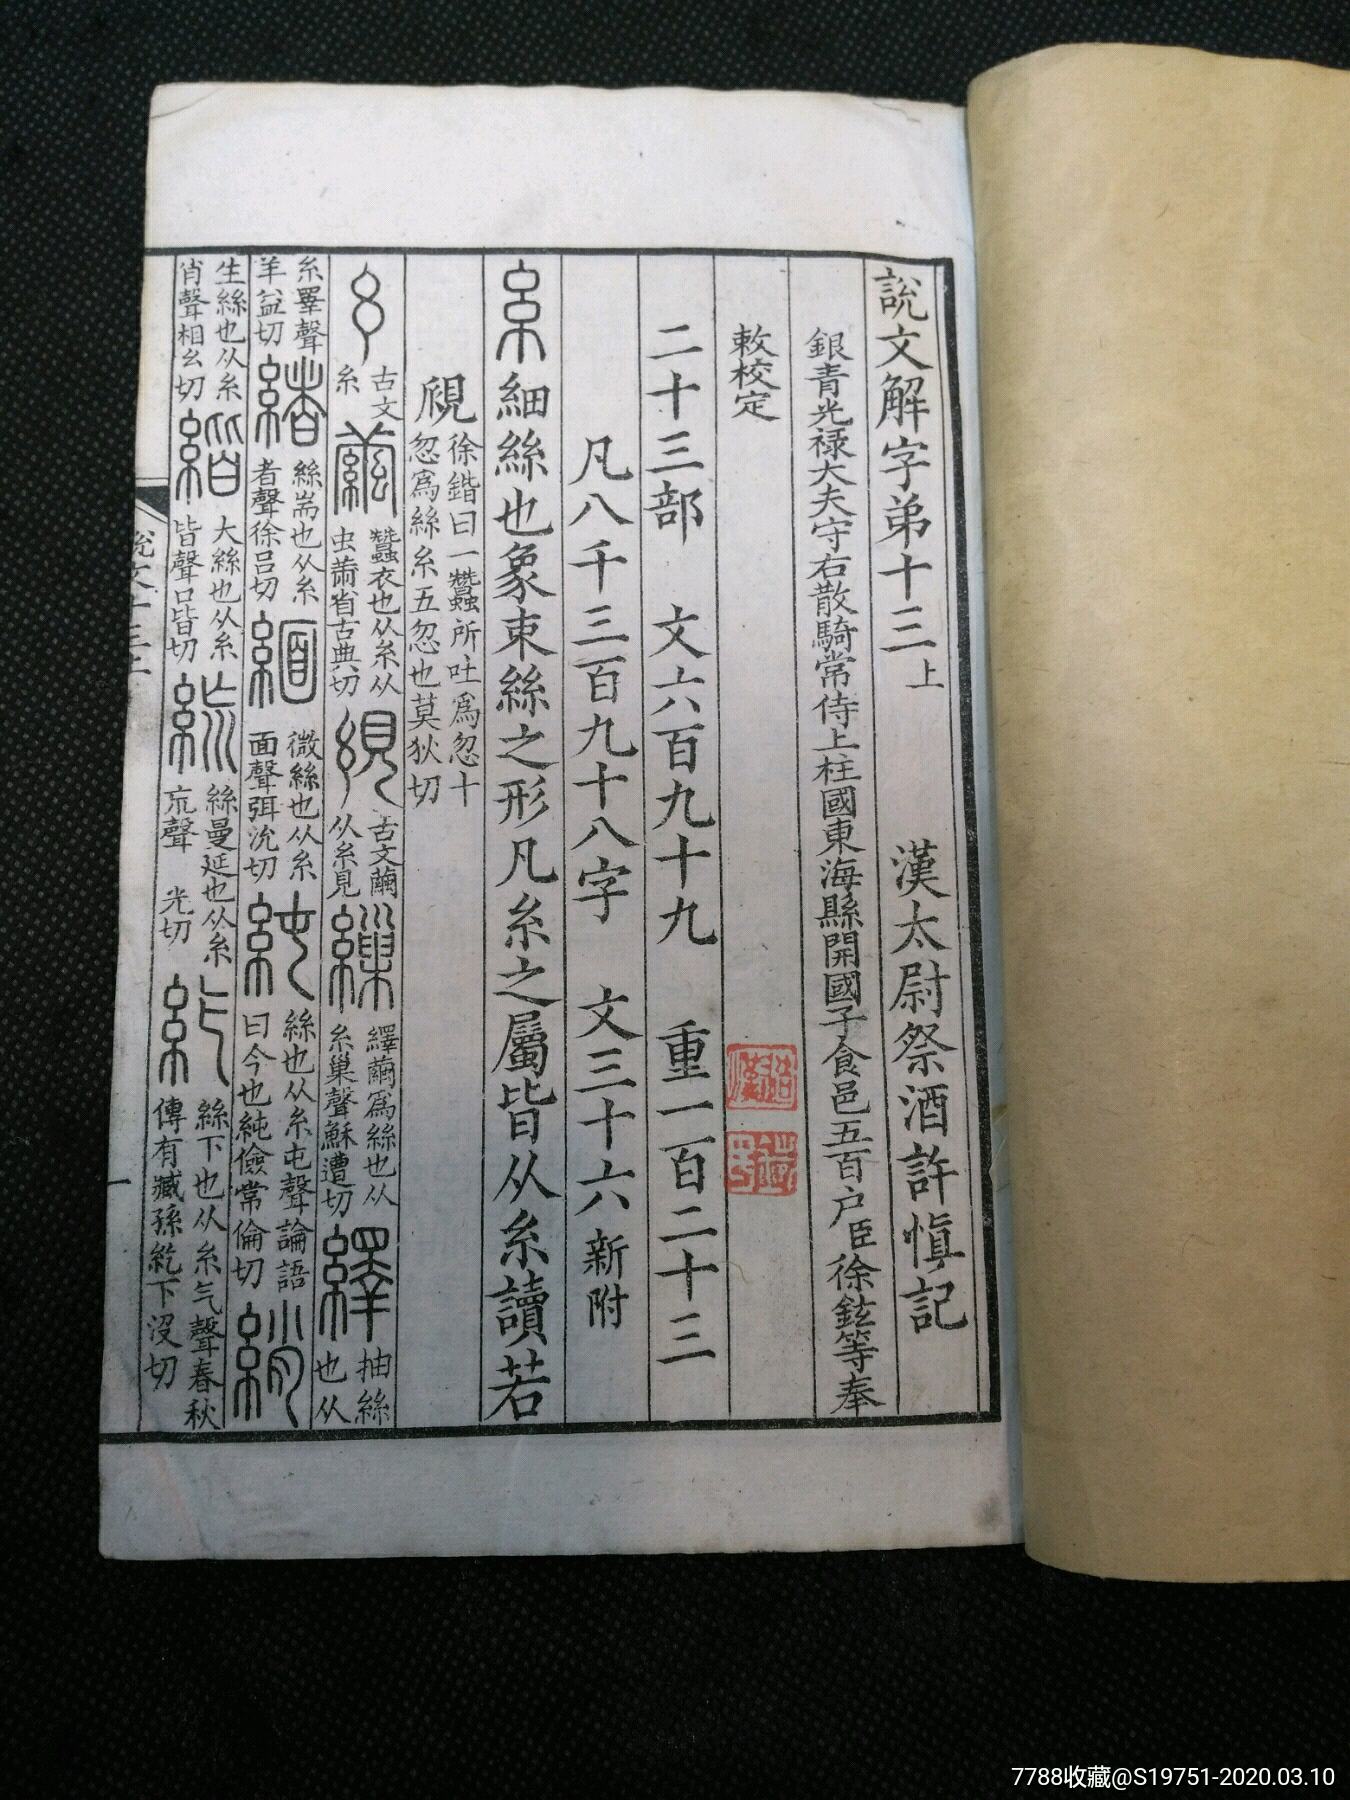 說文解字弟十三上 漢太尉祭酒許慎記
銀青光祿大夫守右散騎常侍上柱國東海縣開國子食邑五百户臣徐鉉等奉
敕校定
二十三部 文六百九十九 重一百二十三
凡八千三百九十八字 文三十六新附
糸細絲也象束絲之形凡糸之屬皆从糸讀若
覛徐鍇曰一蠶所吐爲忽十忽爲絲糸五忽也莫狄切
古文糸 繭蠶衣也从糸从虫黹省古典切 絸古文繭从糸見 繅繹繭爲絲也从糸巢聲穌遭切 繹抽絲也从
糸睪聲羊益切 緒絲耑也从糸者聲徐吕切 緬微絲也从糸面聲弭沇切 純絲也从糸屯聲論語曰今也純儉常倫切 綃
生絲也从糸肖聲相幺切 緒大絲也从糸皆聲口皆切 絲曼延也从糸巟聲 光切 紇絲下也从糸气聲春秋傳有臧孫紇下没切
說文十三上
一
7788收藏@S19751-2020.03.10